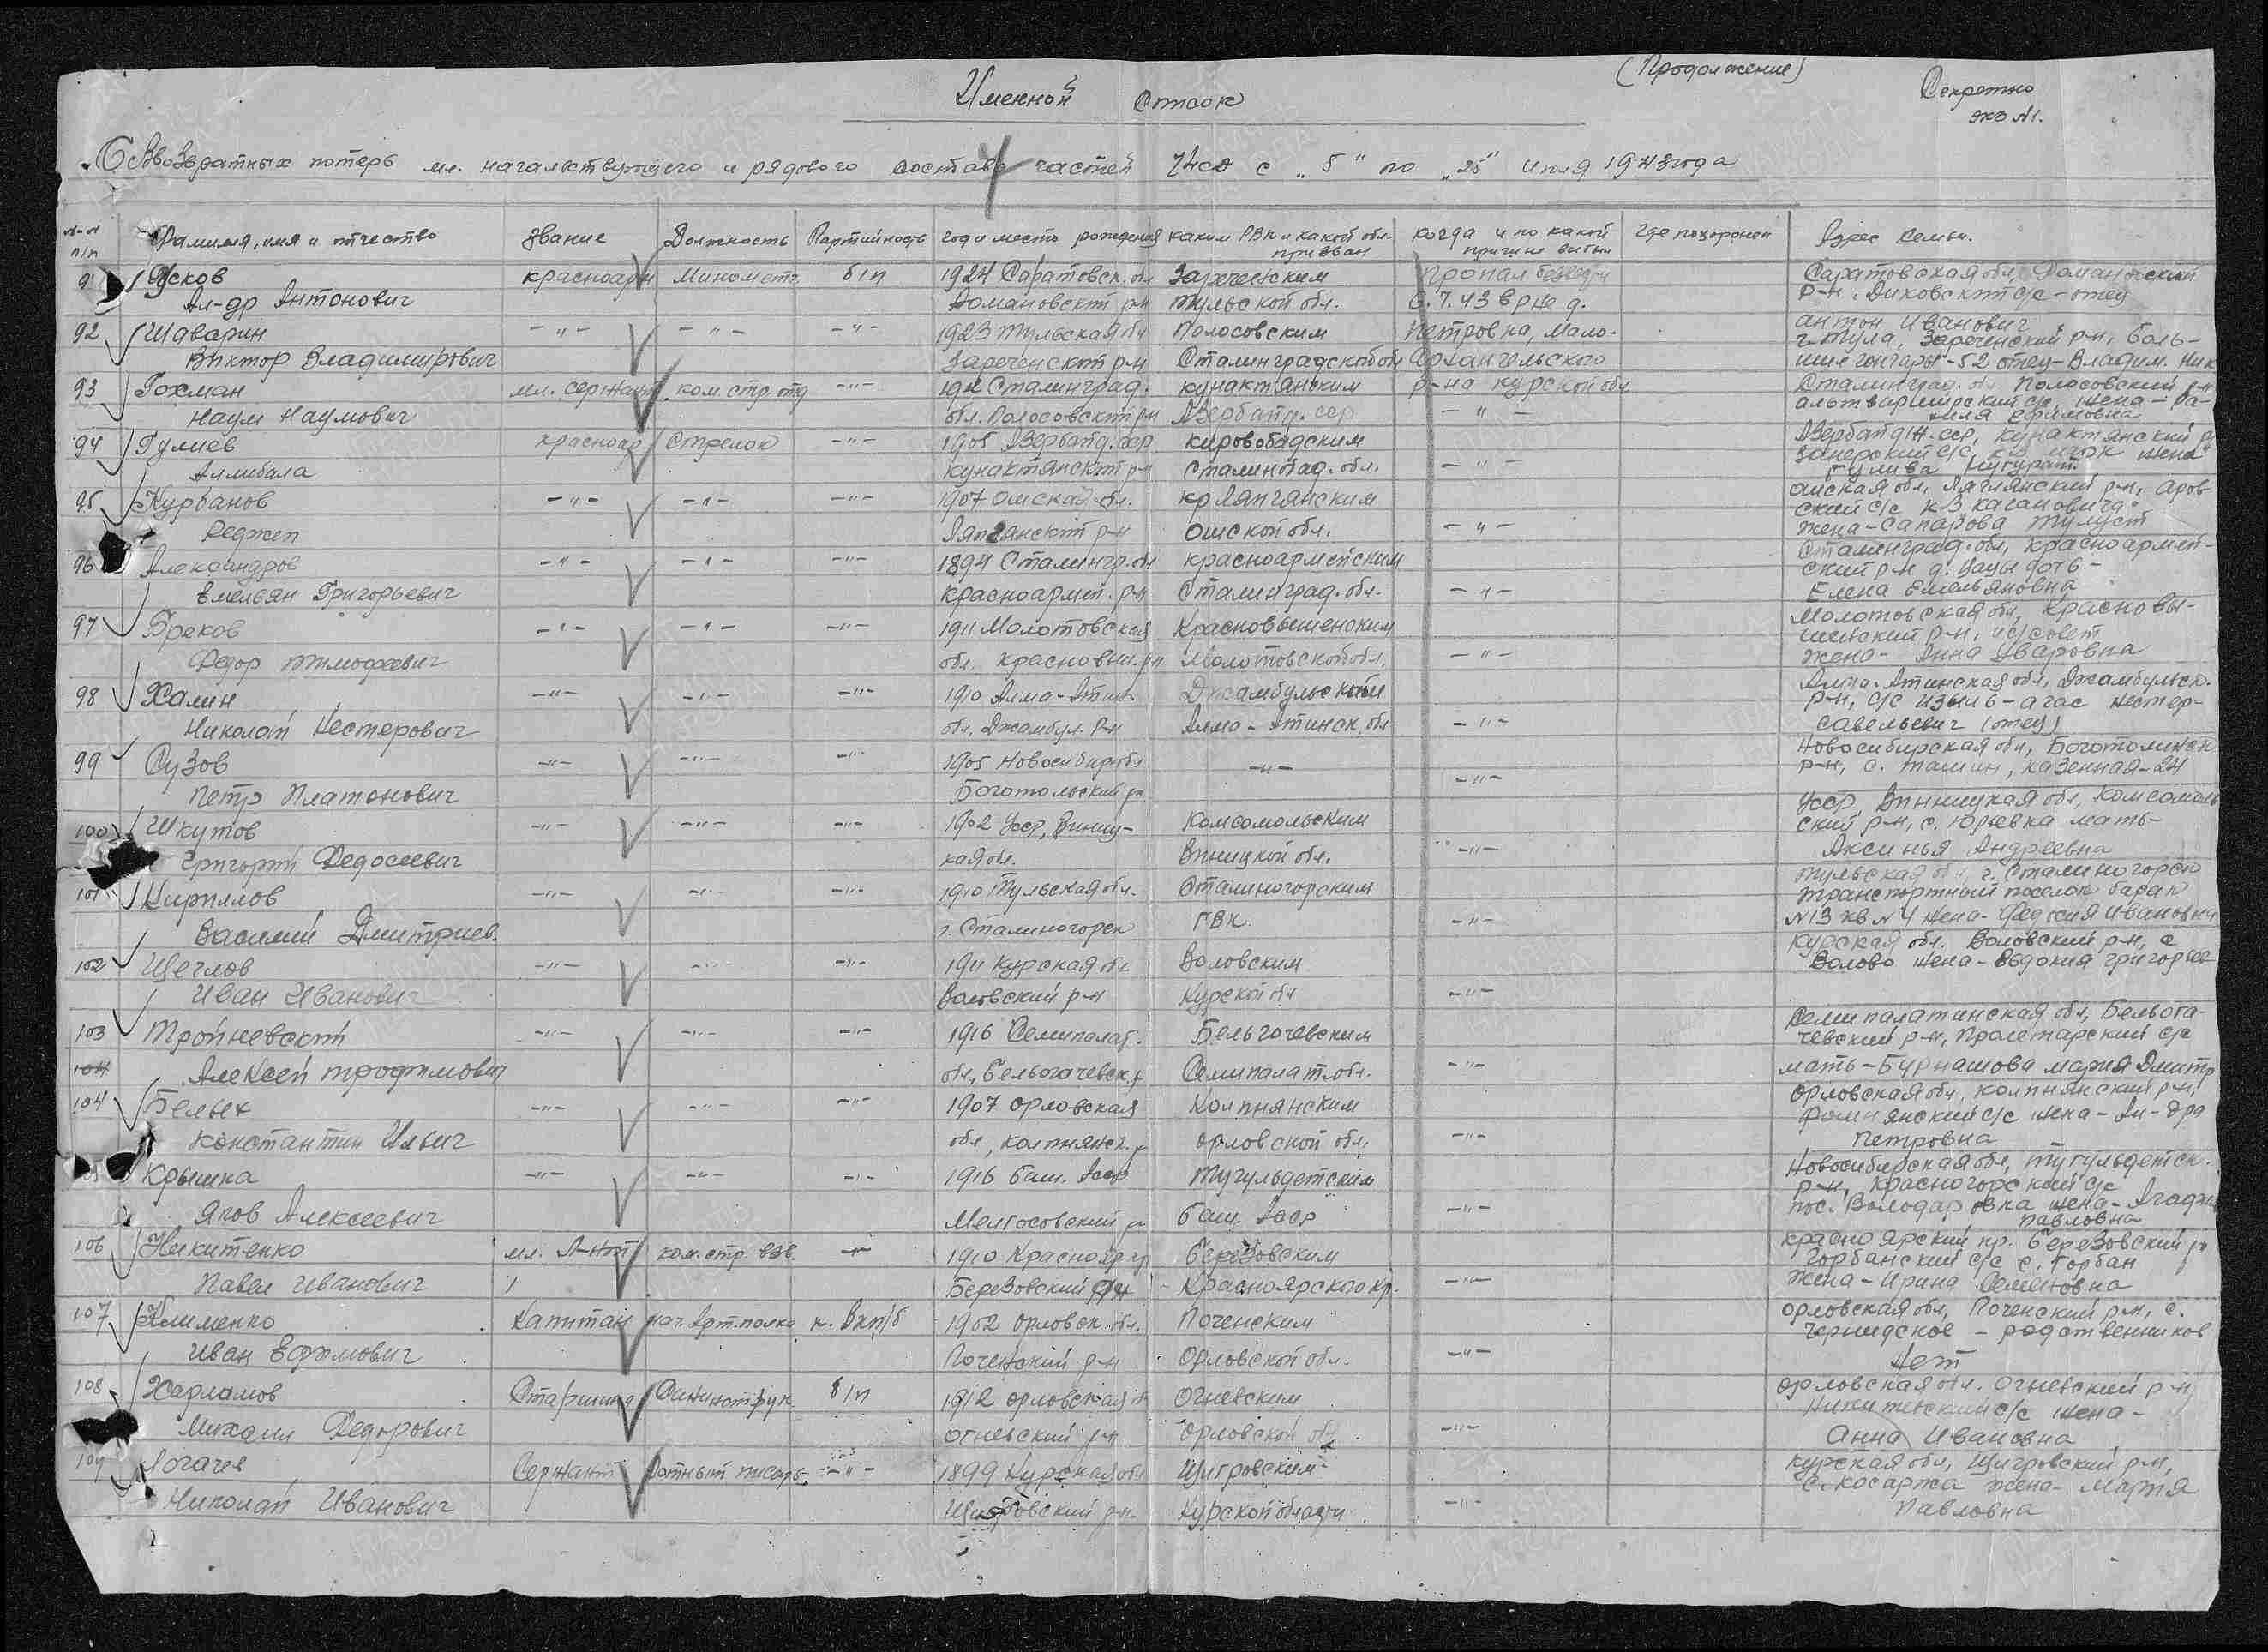 (Продолжение)
Именной список
Секретно
экз №1.
Безвозвратных потерь мл. начальствующего и рядового состава частей 74сд с "5" по "25" июля 1943 года
№-№ п/п Фамилия, имя и отчество Звание Должность Партийность год и место рождения каким РВК и какой обл. призван когда и по какой причине выбыл Где похоронен Адрес семьи.
91 Усков красноарм Минометч б/п 1924 Саратовск. обл Зареченским пропал безвести Саратовская обл, Романовский
Ал-др Антонович Романовский р-н Тульской обл. 6.7.43 в р-не д. р-н, Диковский с/с - отец
антон Иванович
92 Шаварин -"- -"- -"- 1923 Тульская обл Полосовским Петровка, Мало- г. Тула, Зареченский р-н, Боль-
Виктор Владимирович Зареченский р-н Сталинградской обл Архангельского шие гончары-52 отец-Владим. Ник
93 Гохман мл. сержант ком. стр. отд -"- 1912 Сталинград. кунактянским р-на курской обл Сталинград. обл Полосовский р-н
Наум Наумович обл. Полосовский р-н Азербайд. сср -"- с/с, жена-
Ефимовна
94 Гулиев красноар Стрелок -"- 1905 Азербайд. сср кировобадским Азербайдж. сср, Кунактянский р
Алибала кунактянский р-н Сталинград. обл. -"- с/с, жена
95 Курбанов -"- -"- -"- 1907 ошская обл. кр Ляглянским ошская обл, Ляглянский р-н, Аров-
ский с/с к-з Кагановича
Реджеп р-н ошской обл. -"- жена-Сапарова
96 Александров -"- -"- 1894 Сталингр. обл красноармейским Сталинград. обл, красноармей-
ский р-н д. Цацы дочь-
Емельян Григорьевич красноармей. р-н Сталинград. обл. -"- Елена Емельяновна
97 Бреков -"- -"- -"- 1911 Молотовская Красновышенским Молотовская обл, Красновы-
шевский р-н, с/совет
Федор Тимофеевич обл. красновыш. р-н Молотовской обл. -"- жена- Анна Уваровна
98 Халин -"- -"- -"- 1910 Алма-Атин. Джамбульским Алма-Атинская обл, Джамбульск.
р-н, с/с Изыль-агас Нестер-
Николай Нестерович обл, Джамбул. р-н Алма-Атинск. обл -"- Савельевич (отец)
99 Сузов -"- -"- -"- 1905 Новосибир обл -"- Новосибирская обл, Боготолинск
р-н, с. , казенная-24
Петр Платонович Боготольский р- -"-
100 Шкутов -"- -"- -"- 1902 Усср, Винниц- Комсомольским Усср, Винницкая обл, Комсомоль
ский р-н, с. Юрьевка мать-
Григорий Федосеевич кая обл. Виницкой обл. -"- Аксинья Андреевна
101 Кирилов -"- -"- -"- 1910 Тульская обл. Сталиногорским Тульская обл, г. Сталиногорск
Транспортный поселок барак
Василий Дмитриев. г. Сталиногорск ГВК -"- №13 кв №4 жена- Федосия Ивановна
102 Щеглов -"- -"- -"- 1911 Курская обл Воловским Курская обл. Воловский р-н, с
Волово жена-Евдокия григорьев
Иван Иванович Воловский р-н Курской обл -"-
103 Тройневский -"- -"- -"- 1916 Семипалат. Бельгочевским Семипалатинская обл, Бельога-
чевский р-н, Пролетарский с/с
104 Алексей трофимович обл, Бельогачевск. р Семипалат. обл. -"- мать-Бурнашова мария Дмитр
104 Белых -"- -"- -"- 1907 орловская Колпнянским Орловская обл, колпнянский р-н,
Фомнянский с/с жена-Ал-дра
Константин Ильич обл, колпнянск. р орловской обл. -"- Петровна
105 Крышка -"- -"- -"- 1916 баш. Асср Тугульдетским Новосибирская обл, Тугульдетск.
р-н, Красногорский с/с
Яков Алексеевич р Баш. Асср -"- пос. Володаровка жена-Агафья
Павловна
106 Никитенко мл. Л-нт ком. стр. взв. -"- 1910 Краснояр кр Березовским красноярский кр. Березовский р
Горбанский с/с с. Горбан
Павел иванович Березовский р-н Красноярского кр. -"- жена-Ирина Семеновна
107 Клименко Капитан нач. Арт. полка к. Вкп/б 1902 орловск. обл. Поченским орловская обл, Поченский р-н, с.
- родственников
Иван Ефимович Поченский р-н Орловской обл. -"- Нет
108 Харламов Старшина Санинструк. б/п 1912 орловская обл Огневским орловская обл. Огневский р-н
Никитевский с/с жена-
Михаил Федорович огневский р-н Орловской обл. -"- Анна Ивановна
109 Логачев Сержант Ротный писарь -"- 1899 Курская обл Щигровским курская обл, Щигровский р-н,
с. косаржа жена- Мария
Николай Иванович Щигровский р-н. Курской области -"- Павловна